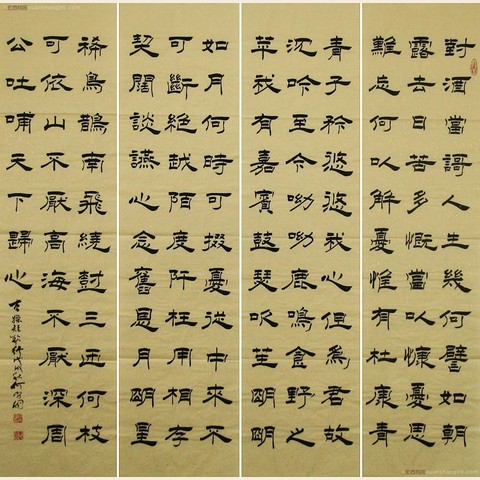 對酒當謌人生幾何譬如朝
露去日苦多慨當以慷憂思
難忘何以解憂惟有杜康青
青子衿悠悠我心但為君故
沉吟至今呦呦鹿鳴食野之
苹我有嘉賓鼓瑟吹笙明明
如月何時可掇憂從中來不
可斷絕越陌度阡枉用相存
契闊談讌心念舊恩月明星
稀烏鵲南飛繞樹三匝何枝
可依山不厭高海不厭深周
公吐哺天下歸心